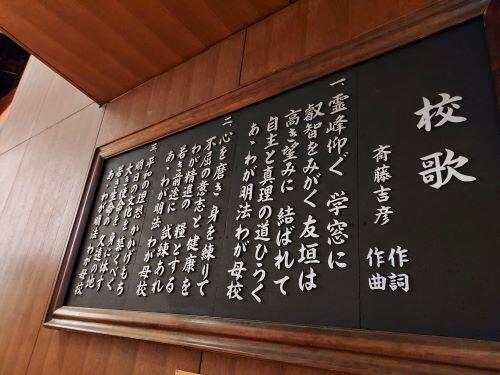 校歌
斉藤吉彦 作詞
作曲
一、霊峰仰ぐ 学窓に
叡智をみがく 友垣は
高き望みに 結ばれて
自主と真理の 道ひらく
あゝわが明法 わが母校
二、心を磨き 身を練りて
不屈の意志と 健康を
わが精進の 糧とする
若き前途に 試練あれ
あゝわが明法 わが母校
三、平和の理想 かかげもち
明日の文化を 築くべく
大き使命を 身に体す
あゝわが明法 わが母校